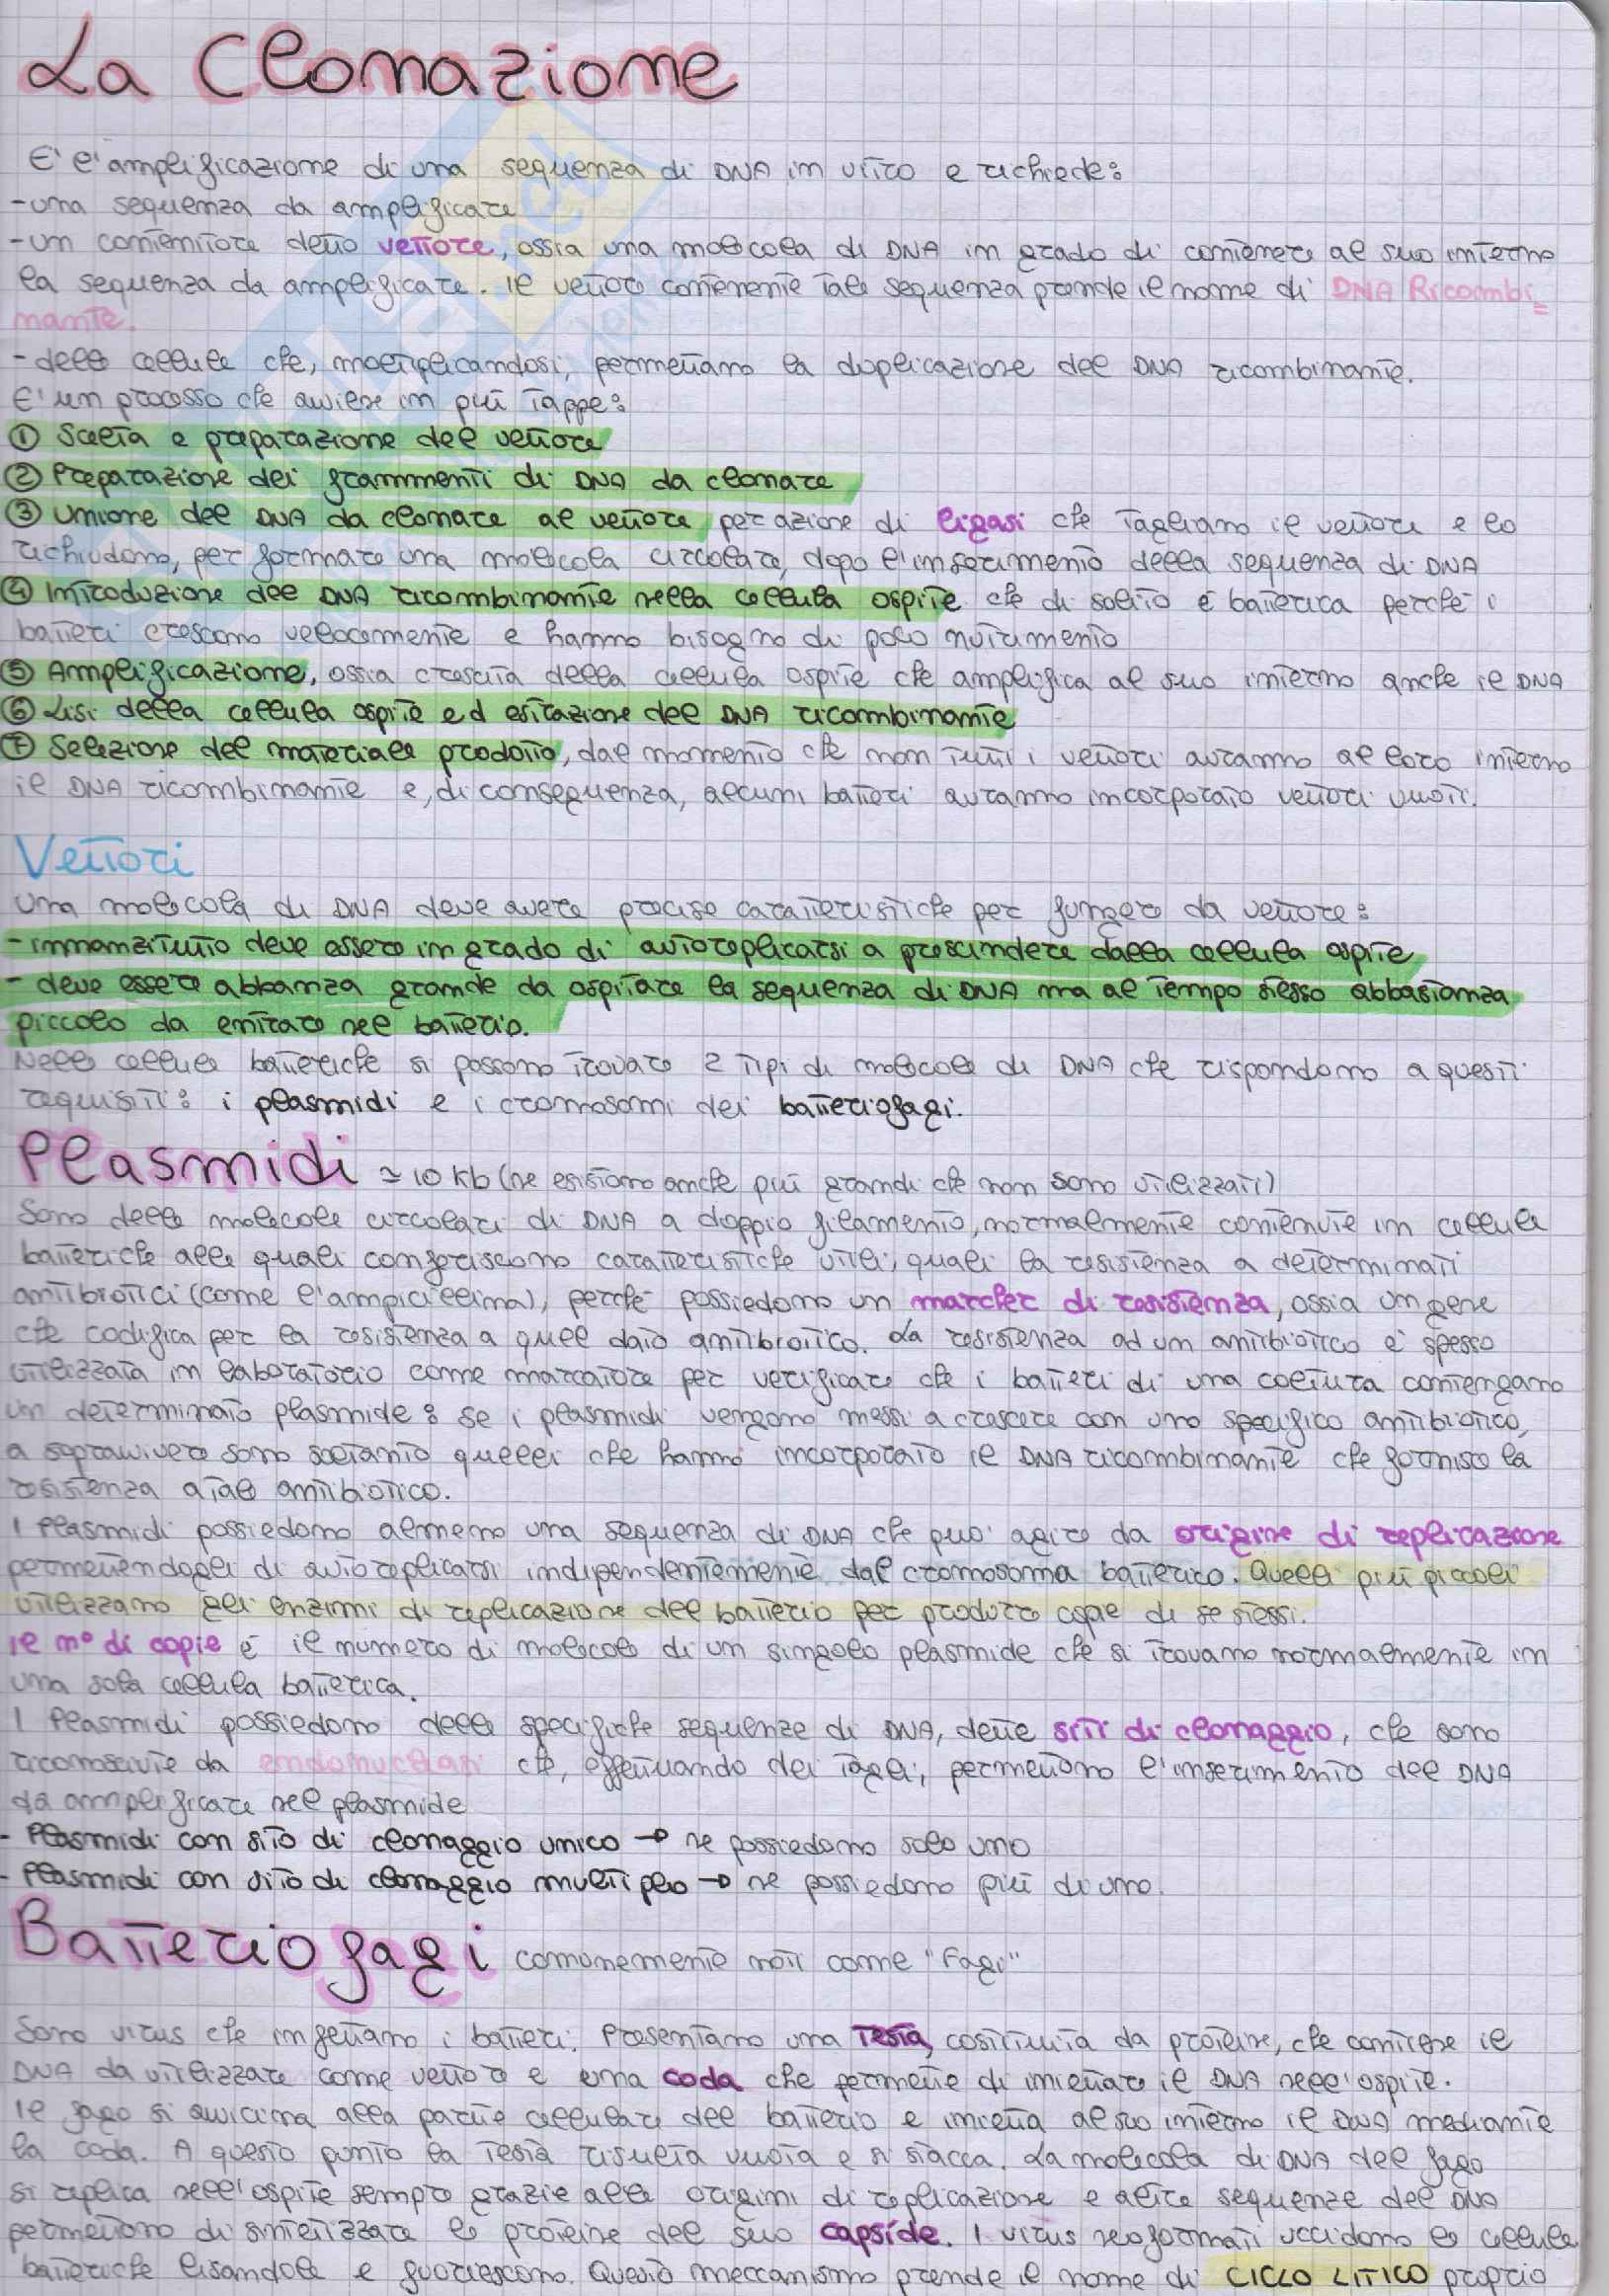 La Clonazione
E' l'amplificazione di una sequenza di DNA in vitro e richiede:
-una sequenza da amplificare
-un contenitore detto vettore, ossia una molecola di DNA in grado di contenere al suo interno
la sequenza da amplificare. Il vettore contenente tale sequenza prende il nome di DNA Ricombi=
nante.
- delle cellule che, moltiplicandosi, permettano la duplicazione del DNA ricombinante.
E' un processo che avviene in più tappe:
① Scelta e preparazione del vettore
② Preparazione dei frammenti di DNA da clonare
③ Unione del DNA da clonare al vettore per azione di ligasi che tagliano il vettore e lo
richiudono, per formare una molecola circolare, dopo l'inserimento della sequenza di DNA
④ Introduzione del DNA ricombinante nella cellula ospite che di solito è batterica perché i
batteri crescono velocemente e hanno bisogno di poco nutrimento
⑤ Amplificazione, ossia crescita della cellula ospite che amplifica al suo interno anche il DNA
⑥ Lisi della cellula ospite ed estrazione del DNA ricombinante
⑦ Selezione del materiale prodotto, dal momento che non tutti i vettori avranno al loro interno
il DNA ricombinante e, di conseguenza, alcuni batteri avranno incorporato vettori vuoti.
Vettori
Una molecola di DNA deve avere precise caratteristiche per fungere da vettore:
- innanzitutto deve essere in grado di autoreplicarsi a prescindere dalla cellula ospite
- deve essere abbanza grande da ospitare la sequenza di DNA ma al tempo stesso abbastanza
piccolo da entrare nel batterio.
Nelle cellule batteriche si possono trovare 2 tipi di molecole di DNA che rispondono a questi
requisiti: i plasmidi e i cromosomi dei batteriofagi.
Plasmidi ≃ 10 Kb (ne esistono anche più grandi che non sono utilizzati)
Sono delle molecole circolari di DNA a doppio filamento, normalmente contenute in cellule
batteriche alle quali conferiscono caratteristiche utili, quali la resistenza a determinati
antibiotici (come l'ampicillina), perché possiedono un marcher di resistenza, ossia un gene
che codifica per la resistenza a quel dato antibiotico. La resistenza ad un antibiotico è spesso
utilizzata in laboratorio come marcatore per verificare che i batteri di una coltura contengano
un determinato plasmide: se i plasmidi vengono messi a crescere con uno specifico antibiotico,
a sopravvivere sono soltanto quelli che hanno incorporato il DNA ricombinante che fornisce la
resistenza a tale antibiotico.
I Plasmidi possiedono almeno una sequenza di DNA che può agire da origine di replicazione
permettendogli di autoreplicarsi indipendentemente dal cromosoma batterico. Quelli più piccoli
utilizzano gli enzimi di replicazione del batterio per produrre copie di se stessi.
Il n° di copie è il numero di molecole di un singolo plasmide che si trovano normalmente in
una sola cellula batterica.
I Plasmidi possiedono delle specifiche sequenze di DNA, dette siti di clonaggio, che sono
riconosciute da endonucleasi che, effettuando dei tagli, permettono l'inserimento del DNA
da amplificare nel plasmide
- Plasmidi con sito di clonaggio unico → ne possiedono solo uno
- Plasmidi con sito di clonaggio multiplo → ne possiedono più di uno.
Batteriofagi comunemente noti come "Fagi"
Sono virus che infettano i batteri. Presentano una testa, costituita da proteine, che contiene il
DNA da utilizzare come vettore e una coda che permette di iniettare il DNA nell'ospite.
Il fago si avvicina alla parete cellulare del batterio e inietta al suo interno il DNA mediante
la coda. A questo punto la testa risulta vuota e si stacca. La molecola di DNA del fago
si replica nell'ospite sempre grazie alle origini di replicazione e altre sequenze del DNA
permettono di sintetizzare le proteine del suo capside. I virus neoformati uccidono le cellule
batteriche lisandole e fuoriescono. Questo meccanismo prende il nome di CICLO LITICO proprio